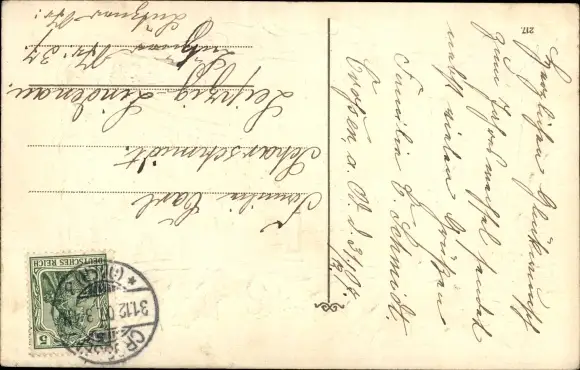 217.
Herzlichen Glückwunsch
zum Jahreswechsel sendet
nebst vielen Grüßen
Familie E. Schmidt,
Crossen, a. O. d. 31./12. 07.
Familie Carl
Scharschmidt.
Leipzig-Lindenau.
Lützner Str. 37
Lützner Str:
DEUTSCHES REICH
5
31.12.07